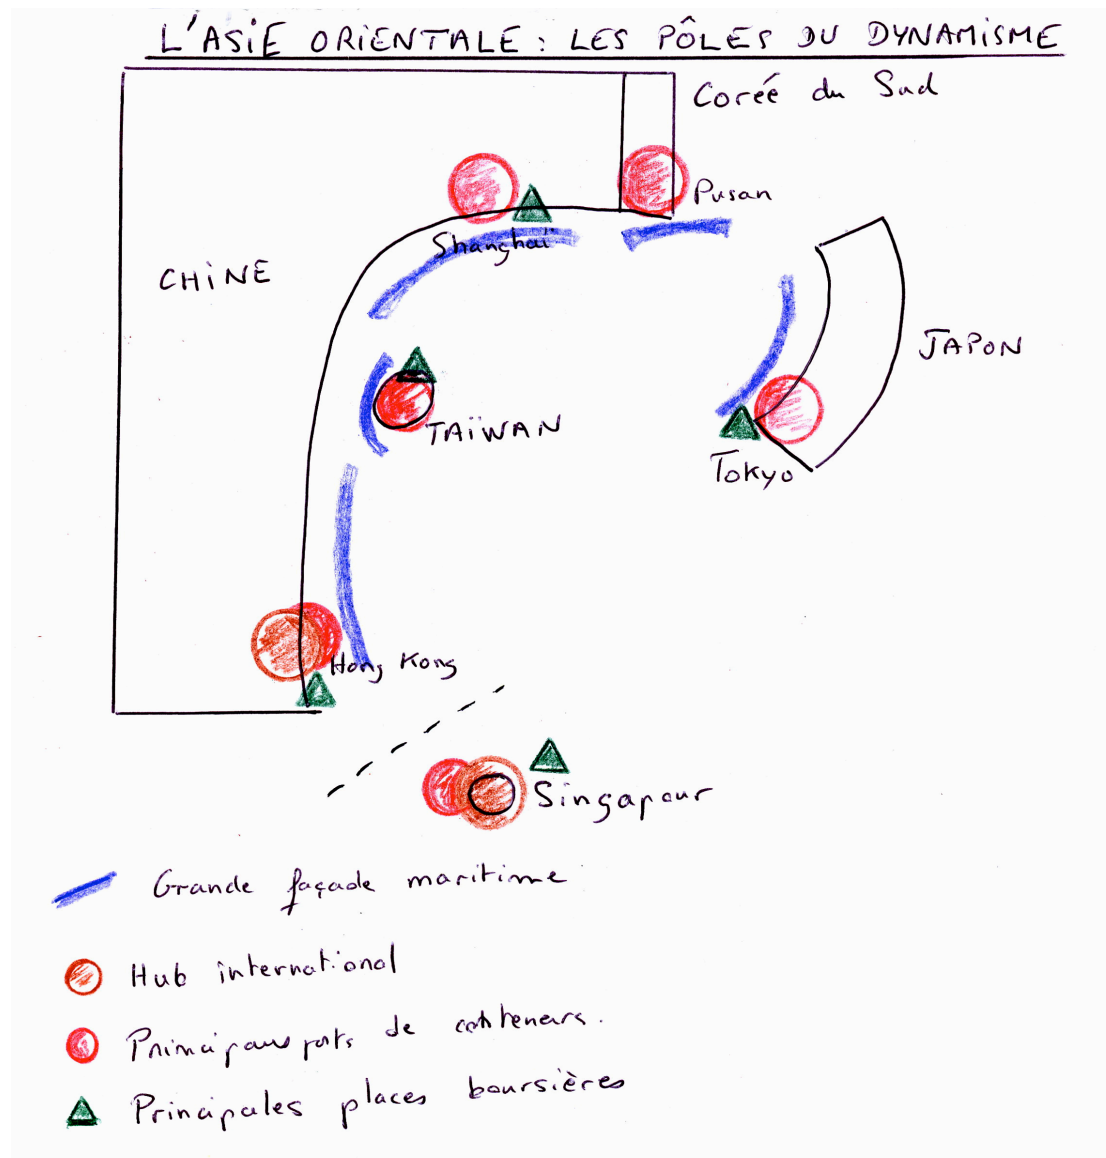 L'ASIE ORIENTALE : LES PÔLES DU DYNAMISME
Corée du Sud
Pusan
Shanghaï
CHINE
JAPON
TAÏWAN
Tokyo
Hong Kong
Singapour
Grande façade maritime
Hub international
Principaux ports de conteneurs.
Principales places boursières